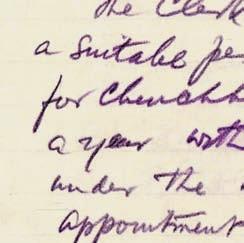 The Clerk
a suitable pe
for Churchh
a year with
under the
appointment